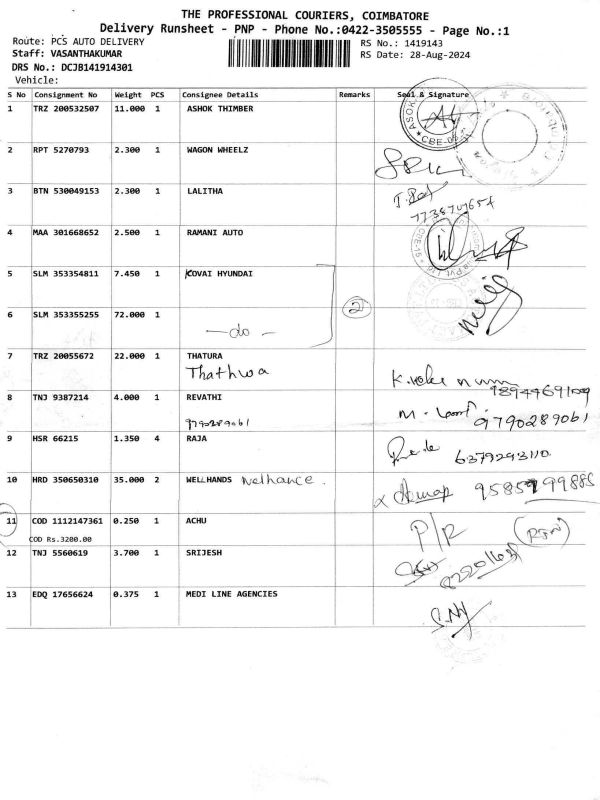 THE PROFESSIONAL COURIERS, COIMBATORE
Delivery Runsheet - PNP - Phone No.:0422-3505555 - Page No.:1
Route: PCS AUTO DELIVERY RS No.: 1419143
Staff: VASANTHAKUMAR RS Date: 28-Aug-2024
DRS No.: DCJB141914301
Vehicle:
S No Consignment No Weight PCS Consignee Details Remarks Seal & Signature
1 TRZ 200532507 11.000 1 ASHOK THIMBER
2 RPT 5270793 2.300 1 WAGON WHEELZ
3 BTN 530049153 2.300 1 LALITHA
4 MAA 301668652 2.500 1 RAMANI AUTO
5 SLM 353354811 7.450 1 KOVAI HYUNDAI
2
6 SLM 353355255 72.000 1
- do -
7 TRZ 20055672 22.000 1 THATURA
Thathwa
8 TNJ 9387214 4.000 1 REVATHI
9790289061 9790289061
9 HSR 66215 1.350 4 RAJA
6379293110
10 HRD 350650310 35.000 2 WELLHANDS welhance.
11 COD 1112147361 0.250 1 ACHU P/R
COD Rs.3200.00
12 TNJ 5560619 3.700 1 SRIJESH
13 EDQ 17656624 0.375 1 MEDI LINE AGENCIES